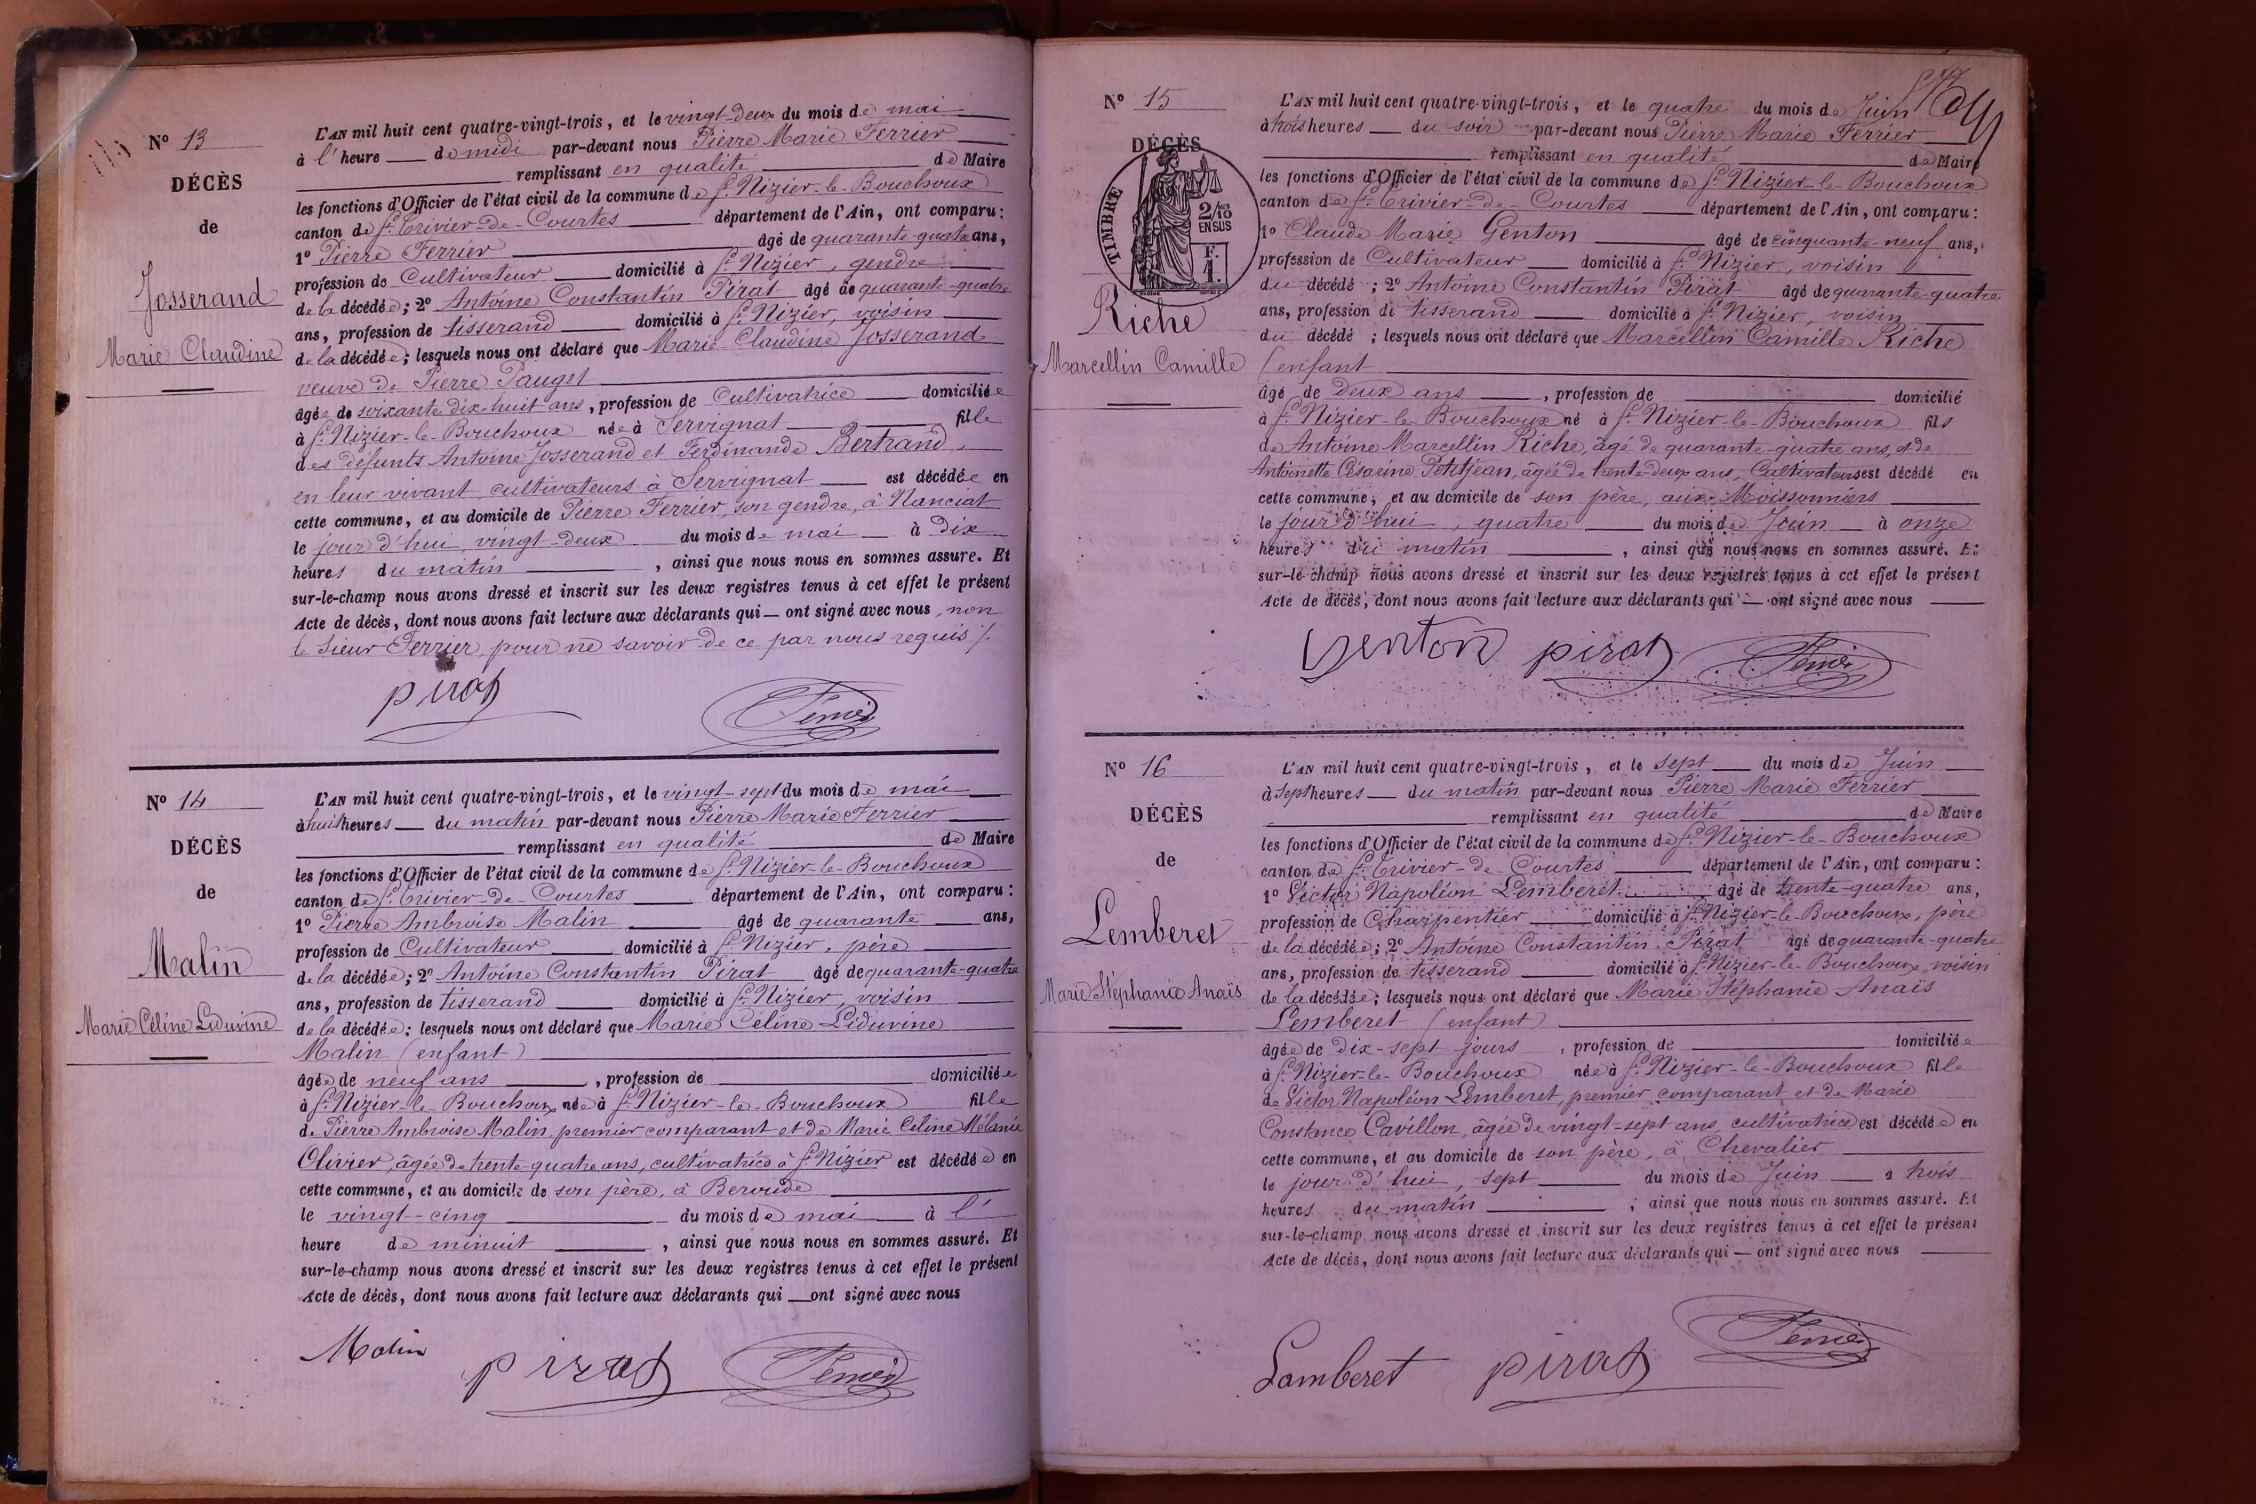 N° 13
DÉCÈS
de
Josserand
Marie Claudine
L'AN mil huit cent quatre-vingt-trois, et le vingt-deux du mois de mai
à l'heure de midi par-devant nous Pierre Marie Ferrier
remplissant en qualité de Maire
les fonctions d'Officier de l'état civil de la commune de St Nizier-le-Bouchoux
canton de St Trivier-de-Courtes département de l'Ain, ont comparu:
1° Pierre Ferrier âgé de quarante-quatre ans,
profession de Cultivateur domicilié à St Nizier, gendre
de la décédée; 2° Antoine Constantin Pirat âgé de quarante-quatre
ans, profession de tisserand domicilié à St Nizier, voisin
de la décédée; lesquels nous ont déclaré que Marie Claudine Josserand
veuve de Pierre Pauget
âgée de soixante dix-huit ans, profession de Cultivatrice domiciliée
à St Nizier-le-Bouchoux née à Servignat fille
des défunts Antoine Josserand et Ferdinande Bertrand,
en leur vivant cultivateurs à Servignat est décédée en
cette commune, et au domicile de Pierre Ferrier, son gendre, à Nanciat
le jour d'hui vingt-deux du mois de mai à dix
heures du matin, ainsi que nous nous en sommes assuré. Et
sur-le-champ nous avons dressé et inscrit sur les deux registres tenus à cet effet le présent
Acte de décès, dont nous avons fait lecture aux déclarants qui — ont signé avec nous, non
le sieur Ferrier, pour ne savoir de ce par nous requis /.
pirat Ferrier
N° 14
DÉCÈS
de
Malin
Marie Céline Liduvine
L'AN mil huit cent quatre-vingt-trois, et le vingt-sept du mois de mai
à huit heures du matin par-devant nous Pierre Marie Ferrier
remplissant en qualité de Maire
les fonctions d'Officier de l'état civil de la commune de St Nizier-le-Bouchoux
canton de St Trivier-de-Courtes département de l'Ain, ont comparu:
1° Pierre Ambroise Malin âgé de quarante ans,
profession de Cultivateur domicilié à St Nizier, père
de la décédée; 2° Antoine Constantin Pirat âgé de quarante-quatre
ans, profession de tisserand domicilié à St Nizier, voisin
de la décédée; lesquels nous ont déclaré que Marie Céline Liduvine
Malin (enfant)
âgée de neuf ans, profession de domiciliée
à St Nizier-le-Bouchoux née à St Nizier-le-Bouchoux fille
de Pierre Ambroise Malin, premier comparant et de Marie Céline Mélanie
Olivier, âgée de trente-quatre ans, cultivatrice à St Nizier est décédée en
cette commune, et au domicile de son père, à Beroude
le vingt-cinq du mois de mai à l'
heure de minuit, ainsi que nous nous en sommes assuré. Et
sur-le-champ nous avons dressé et inscrit sur les deux registres tenus à cet effet le présent
Acte de décès, dont nous avons fait lecture aux déclarants qui — ont signé avec nous
Malin pirat Ferrier
N° 15
DÉCÈS
TIMBRE
2/10 EN SUS
F. 1.
Riche
Marcellin Camille
L'AN mil huit cent quatre-vingt-trois, et le quatre du mois de Juin
à trois heures du soir par-devant nous Pierre Marie Ferrier
remplissant en qualité de Maire
les fonctions d'Officier de l'état civil de la commune de St Nizier-le-Bouchoux
canton de St Trivier-de-Courtes département de l'Ain, ont comparu:
1° Claude Marie Genton âgé de cinquante-neuf ans,
profession de Cultivateur domicilié à St Nizier, voisin
du décédé; 2° Antoine Constantin Pirat âgé de quarante-quatre
ans, profession de tisserand domicilié à St Nizier, voisin
du décédé; lesquels nous ont déclaré que Marcellin Camille Riche
(enfant
âgé de deux ans, profession de domicilié
à St Nizier-le-Bouchoux né à St Nizier-le-Bouchoux fils
de Antoine Marcellin Riche, âgé de quarante-quatre ans, et de
Antoinette Césarine Petitjean, âgée de trente-deux ans, Cultivateurs est décédé en
cette commune, et au domicile de son père, aux Moissonniers
le jour d'hui, quatre du mois de Juin à onze
heures du matin, ainsi que nous nous en sommes assuré. Et
sur-le-champ nous avons dressé et inscrit sur les deux registres tenus à cet effet le présent
Acte de décès, dont nous avons fait lecture aux déclarants qui — ont signé avec nous
Genton pirat Ferrier
N° 16
DÉCÈS
de
Lemberet
Marie Stéphanie Anaïs
L'AN mil huit cent quatre-vingt-trois, et le sept du mois de Juin
à sept heures du matin par-devant nous Pierre Marie Ferrier
remplissant en qualité de Maire
les fonctions d'Officier de l'état civil de la commune de St Nizier-le-Bouchoux
canton de St Trivier-de-Courtes département de l'Ain, ont comparu:
1° Victor Napoléon Lemberet âgé de trente-quatre ans,
profession de Charpentier domicilié à St Nizier-le-Bouchoux, père
de la décédée; 2° Antoine Constantin Pirat âgé de quarante-quatre
ans, profession de tisserand domicilié à St Nizier-le-Bouchoux, voisin
de la décédée; lesquels nous ont déclaré que Marie Stéphanie Anaïs
Lemberet (enfant)
âgée de dix-sept jours, profession de domiciliée
à St Nizier-le-Bouchoux née à St Nizier-le-Bouchoux fille
de Victor Napoléon Lemberet, premier comparant et de Marie
Constance Cavillon, âgée de vingt-sept ans, cultivatrice est décédée en
cette commune, et au domicile de son père, à Chevalier
le jour d'hui, sept du mois de Juin à trois
heures du matin; ainsi que nous nous en sommes assuré. Et
sur-le-champ nous avons dressé et inscrit sur les deux registres tenus à cet effet le présent
Acte de décès, dont nous avons fait lecture aux déclarants qui — ont signé avec nous
Lamberet pirat Ferrier